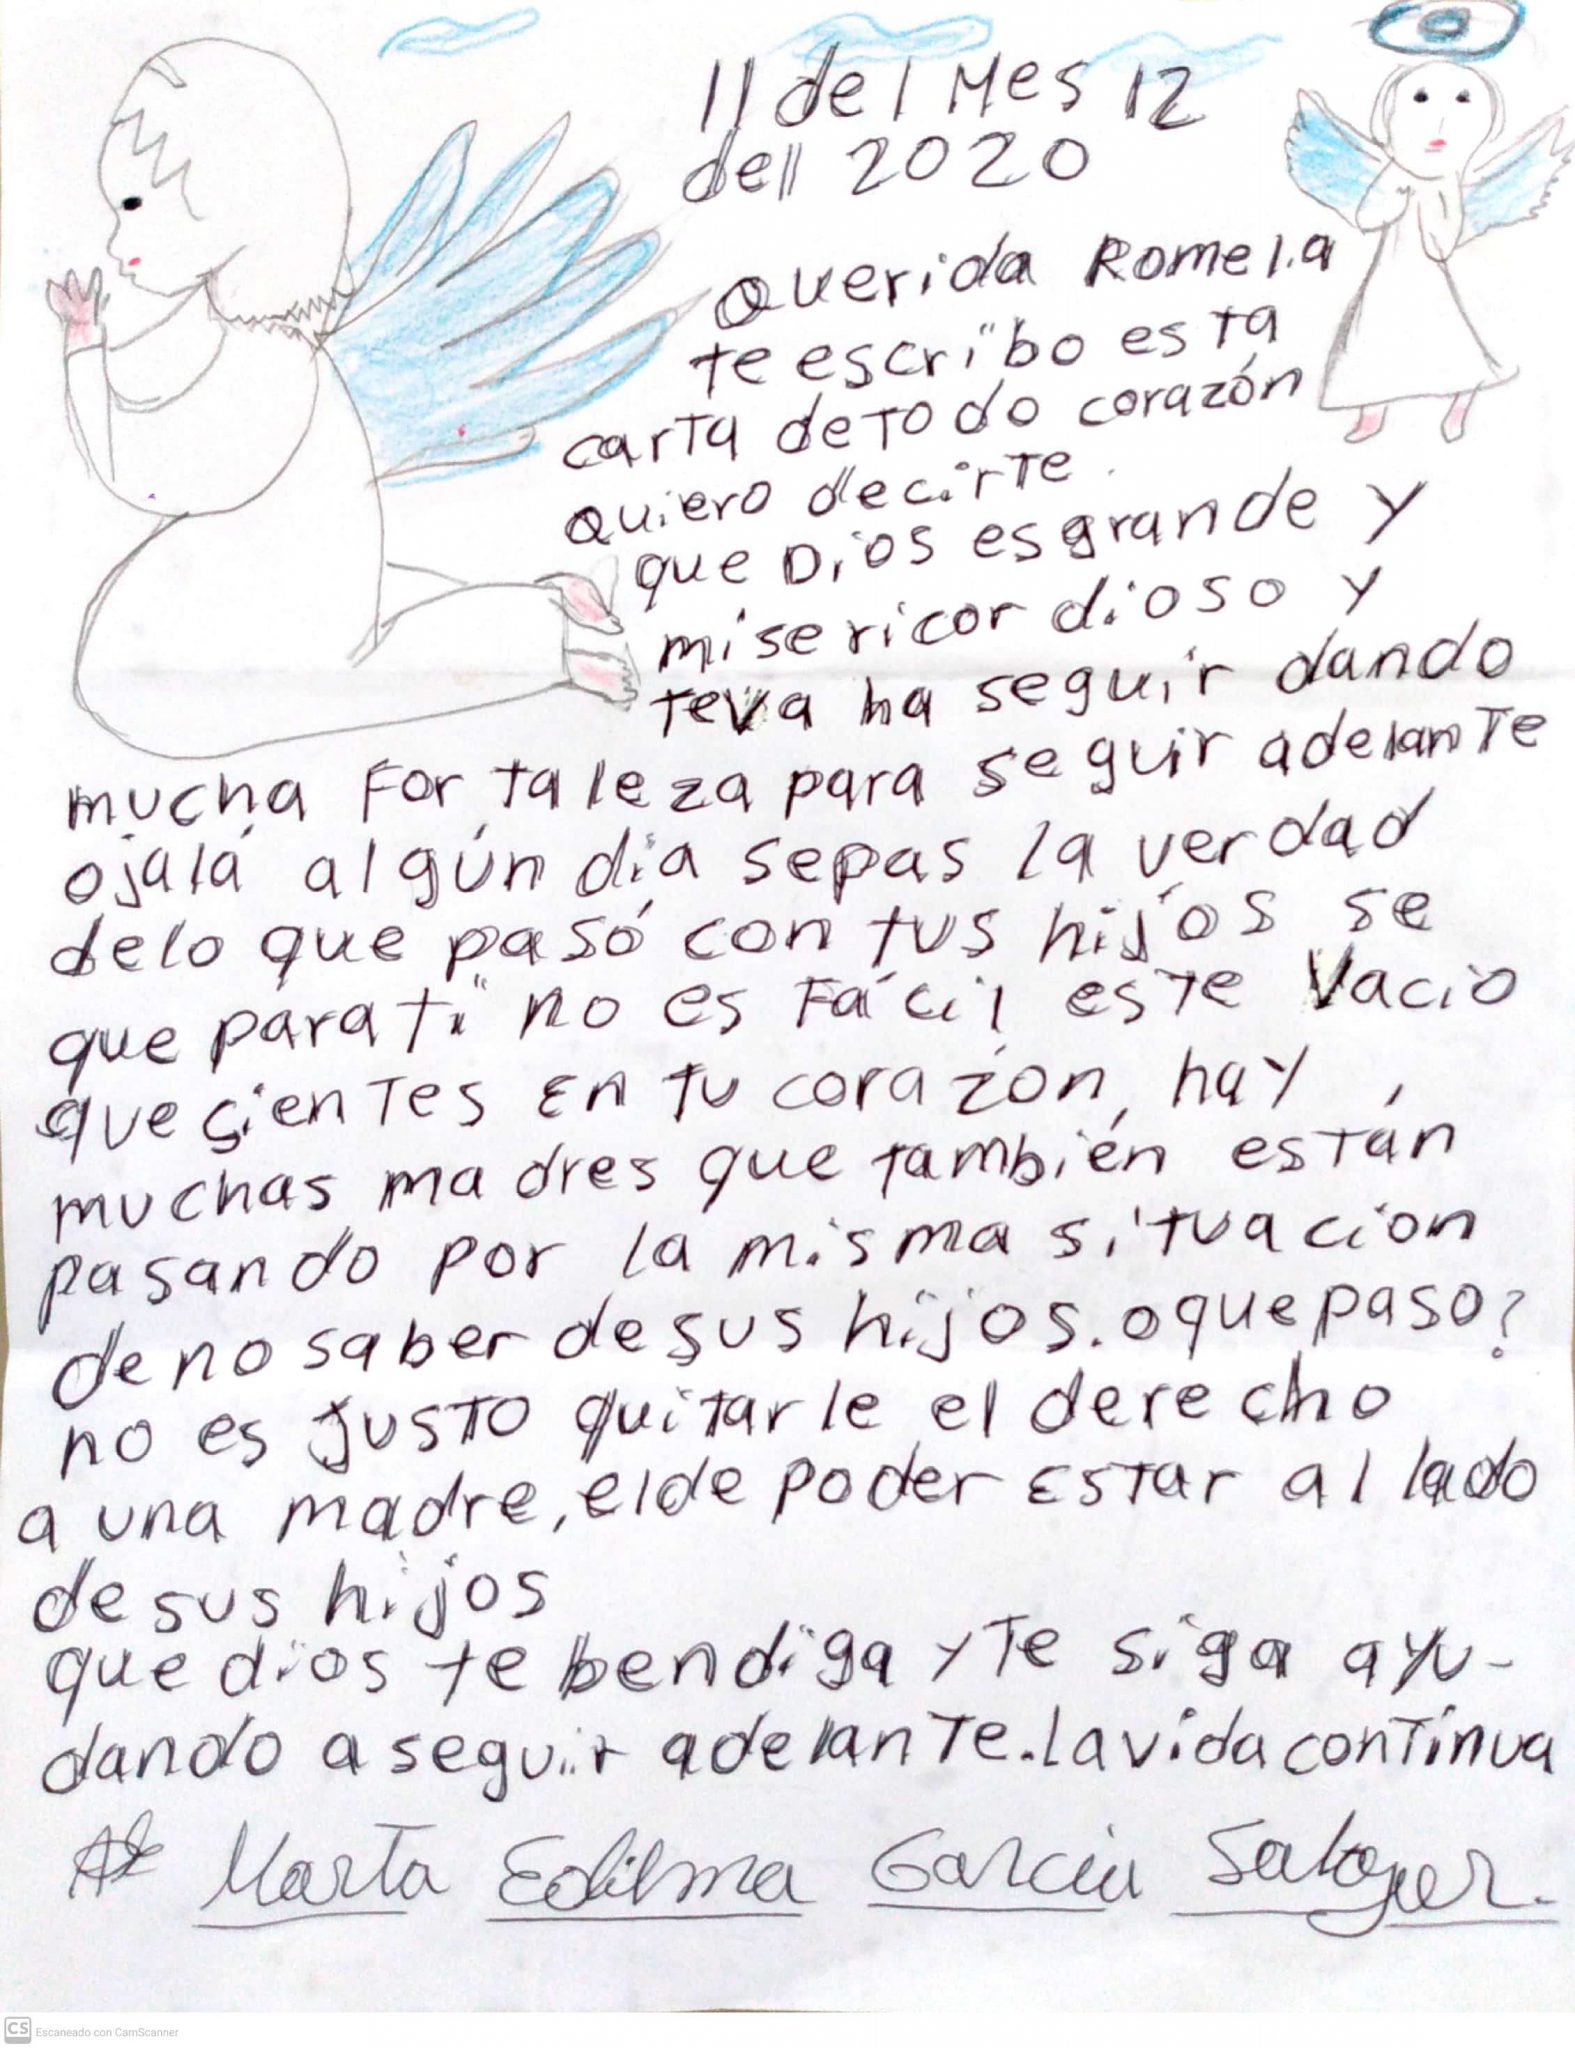 11 del Mes 12
dell 2020
Querida Romelia
te escribo esta
carta de todo corazón
quiero decirte
que Dios es grande y
misericordioso y
teva ha seguir dando
mucha Fortaleza para seguir adelante
ojalá algún día sepas la verdad
delo que pasó con tus hijos se
que para ti no es Fácil este Vacio
que sientes En tu corazón, hay
muchas madres que también están
pasando por la misma situación
de no saber de sus hijos. o que paso?
no es justo quitarle el derecho
a una madre, el de poder Estar al lado
de sus hijos
que dios te bendiga y te siga ayu-
dando a seguir adelante. la vida continua
Marta Edilma Garcia
CS Escaneado con CamScanner